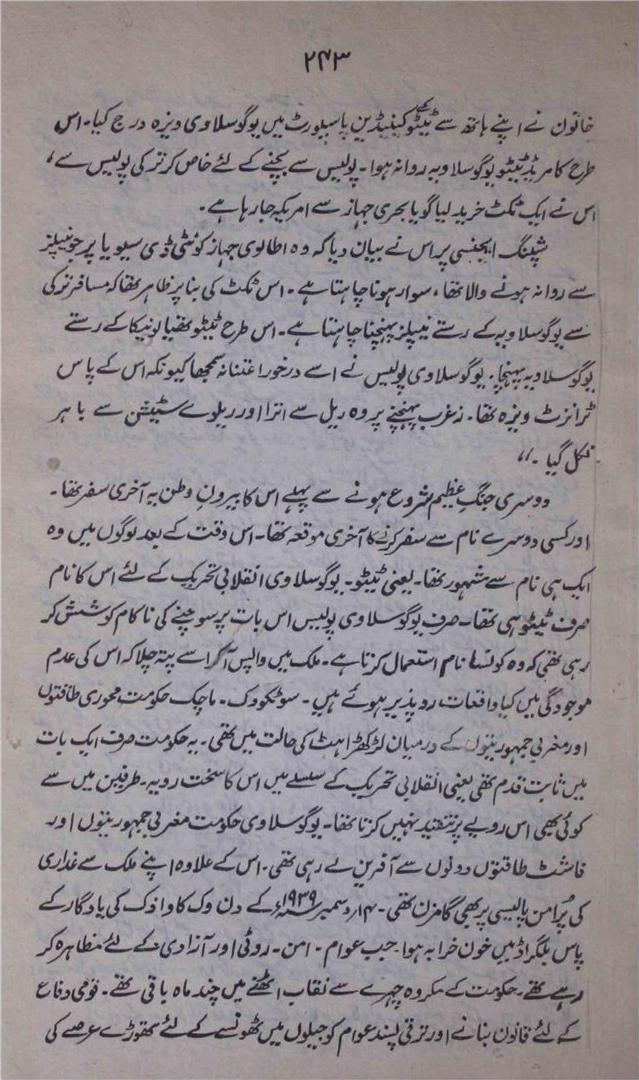 ۲۴۳
خاتون نے اپنے ہاتھ سے ٹیٹو کے کینیڈین پاسپورٹ میں یوگوسلاوی ویزہ درج کیا۔ اس
طرح کامریڈ ٹیٹو یوگوسلاویہ روانہ ہوا۔ پولیس سے بچنے کے لئے خاص کر ترکی پولیس سے،
اس نے ایک ٹکٹ خرید لیا گویا بحری جہاز سے امریکہ جا رہا ہے۔
شپنگ ایجنسی پر اس نے بیان دیا کہ وہ اطالوی جہاز کونٹی ڈی سیویا پر جو نیپلز
سے روانہ ہونے والا تھا، سوار ہونا چاہتا ہے۔ اس ٹکٹ کی بنا پر ظاہر تھا کہ مسافر ترکی
سے یوگوسلاویہ کے رستے نیپلز پہنچنا چاہتا ہے۔ اس طرح ٹیٹو تھیا لونیکا کے رستے
یوگوسلاویہ پہنچا۔ یوگوسلاوی پولیس نے اسے درخور اعتنا نہ سمجھا کیونکہ اس کے پاس
ٹرانزٹ ویزہ تھا۔ زغرب پہنچنے پر وہ ریل سے اترا اور ریلوے سٹیشن سے باہر
نکل گیا۔،،
دوسری جنگ عظیم شروع ہونے سے پہلے اس کا بیرون وطن یہ آخری سفر تھا۔
اور کسی دوسرے نام سے سفر کرنے کا آخری موقعہ تھا۔ اس وقت کے بعد لوگوں میں وہ
ایک ہی نام سے مشہور تھا۔ یعنی ٹیٹو۔ یوگوسلاوی انقلابی تحریک کے لئے اس کا نام
صرف ٹیٹو ہی تھا۔ صرف یوگوسلاوی پولیس اس بات پر سوچنے کی ناکام کوشش کر
رہی تھی کہ وہ کونسا نام استعمال کرتا ہے۔ ملک میں واپس آکر اسے پتہ چلا کہ اس کی عدم
موجودگی میں کیا واقعات رو پذیر ہوئے ہیں۔ سوٹکووک۔ ماچک حکومت محوری طاقتوں
اور مغربی جمہوریتوں کے درمیان لڑکھڑاہٹ کی حالت میں تھی۔ یہ حکومت صرف ایک بات
میں ثابت قدم تھی یعنی انقلابی تحریک کے سلسلے میں اس کا سخت رویہ۔ طرفین میں سے
کوئی بھی اس رویے پر تنقید نہیں کرتا تھا۔ یوگوسلاوی حکومت مغربی جمہوریتوں اور
فاشٹ طاقتوں دونوں سے آفرین لے رہی تھی۔ اس کے علاوہ اپنے ملک سے غداری
کی پُرامن پالیسی پر بھی گامزن تھی۔ ۱۴ دسمبر ۱۹۳۹ء کے دن وک کاوازک کی یادگار کے
پاس بلگراڈ میں خون خرابہ ہوا۔ جب عوام۔ امن۔ روٹی اور آزادی کے لئے مظاہرہ کر
رہے تھے۔ حکومت کے مکروہ چہرے سے نقاب اٹھنے میں چند ماہ باقی تھے۔ قومی دفاع
کے لئے قانون بنانے اور ترقی پسند عوام کو جیلوں میں ٹھونسے کے لئے تھوڑے عرصے کی